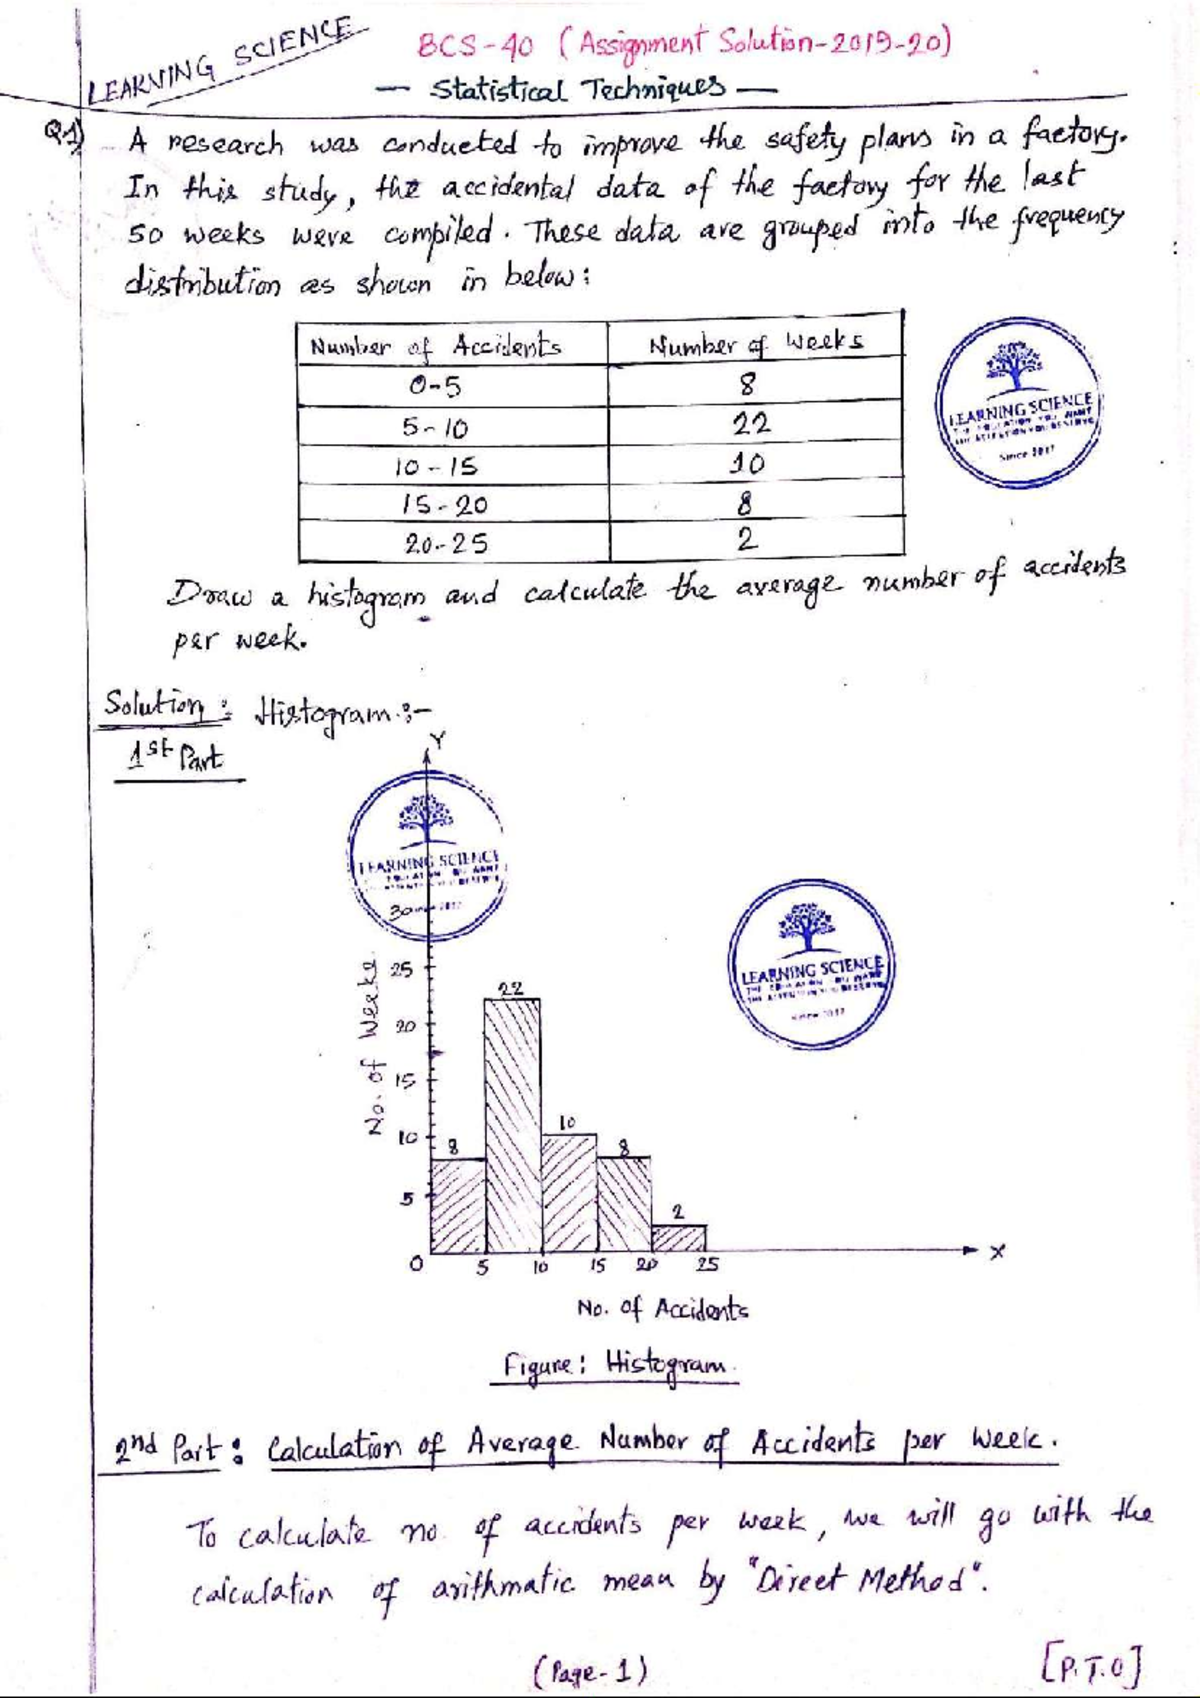 LEARNING SCIENCE
BCS-40 (Assignment Solution-2019-20)
— Statistical Techniques —
Q1) A research was conducted to improve the safety plans in a factory.
In this study, the accidental data of the factory for the last
50 weeks were compiled. These data are grouped into the frequency
distribution as shown in below:
Number of Accidents Number of Weeks
0-5 8
5-10 22
10-15 10
15-20 8
20-25 2
LEARNING SCIENCE
THE EDUCATION YOU WANT
THE ATTENTION YOU DESERVE
Since 2017
Draw a histogram and calculate the average number of accidents
per week.
Solution: Histogram:-
1st Part
Y
LEARNING SCIENCE
30
25
20
15
10
5
0
No. of Weeks
8
22
10
8
2
5 10 15 20 25
X
LEARNING SCIENCE
THE EDUCATION YOU WANT
THE ATTENTION YOU DESERVE
Since 2017
No. of Accidents
Figure: Histogram.
2nd Part: Calculation of Average Number of Accidents per Week.
To calculate no. of accidents per week, we will go with the
calculation of arithmatic mean by "Direct Method".
(Page-1)
[P.T.O]